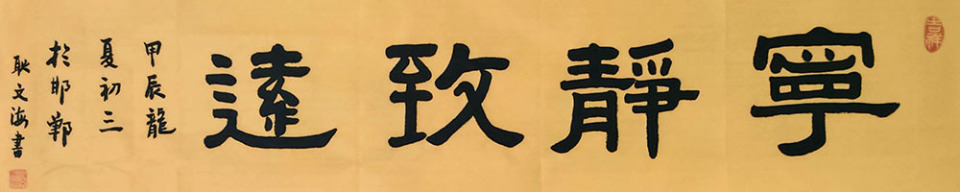 寧靜致遠
甲辰龍
夏初三
於邯鄲
耿文海書